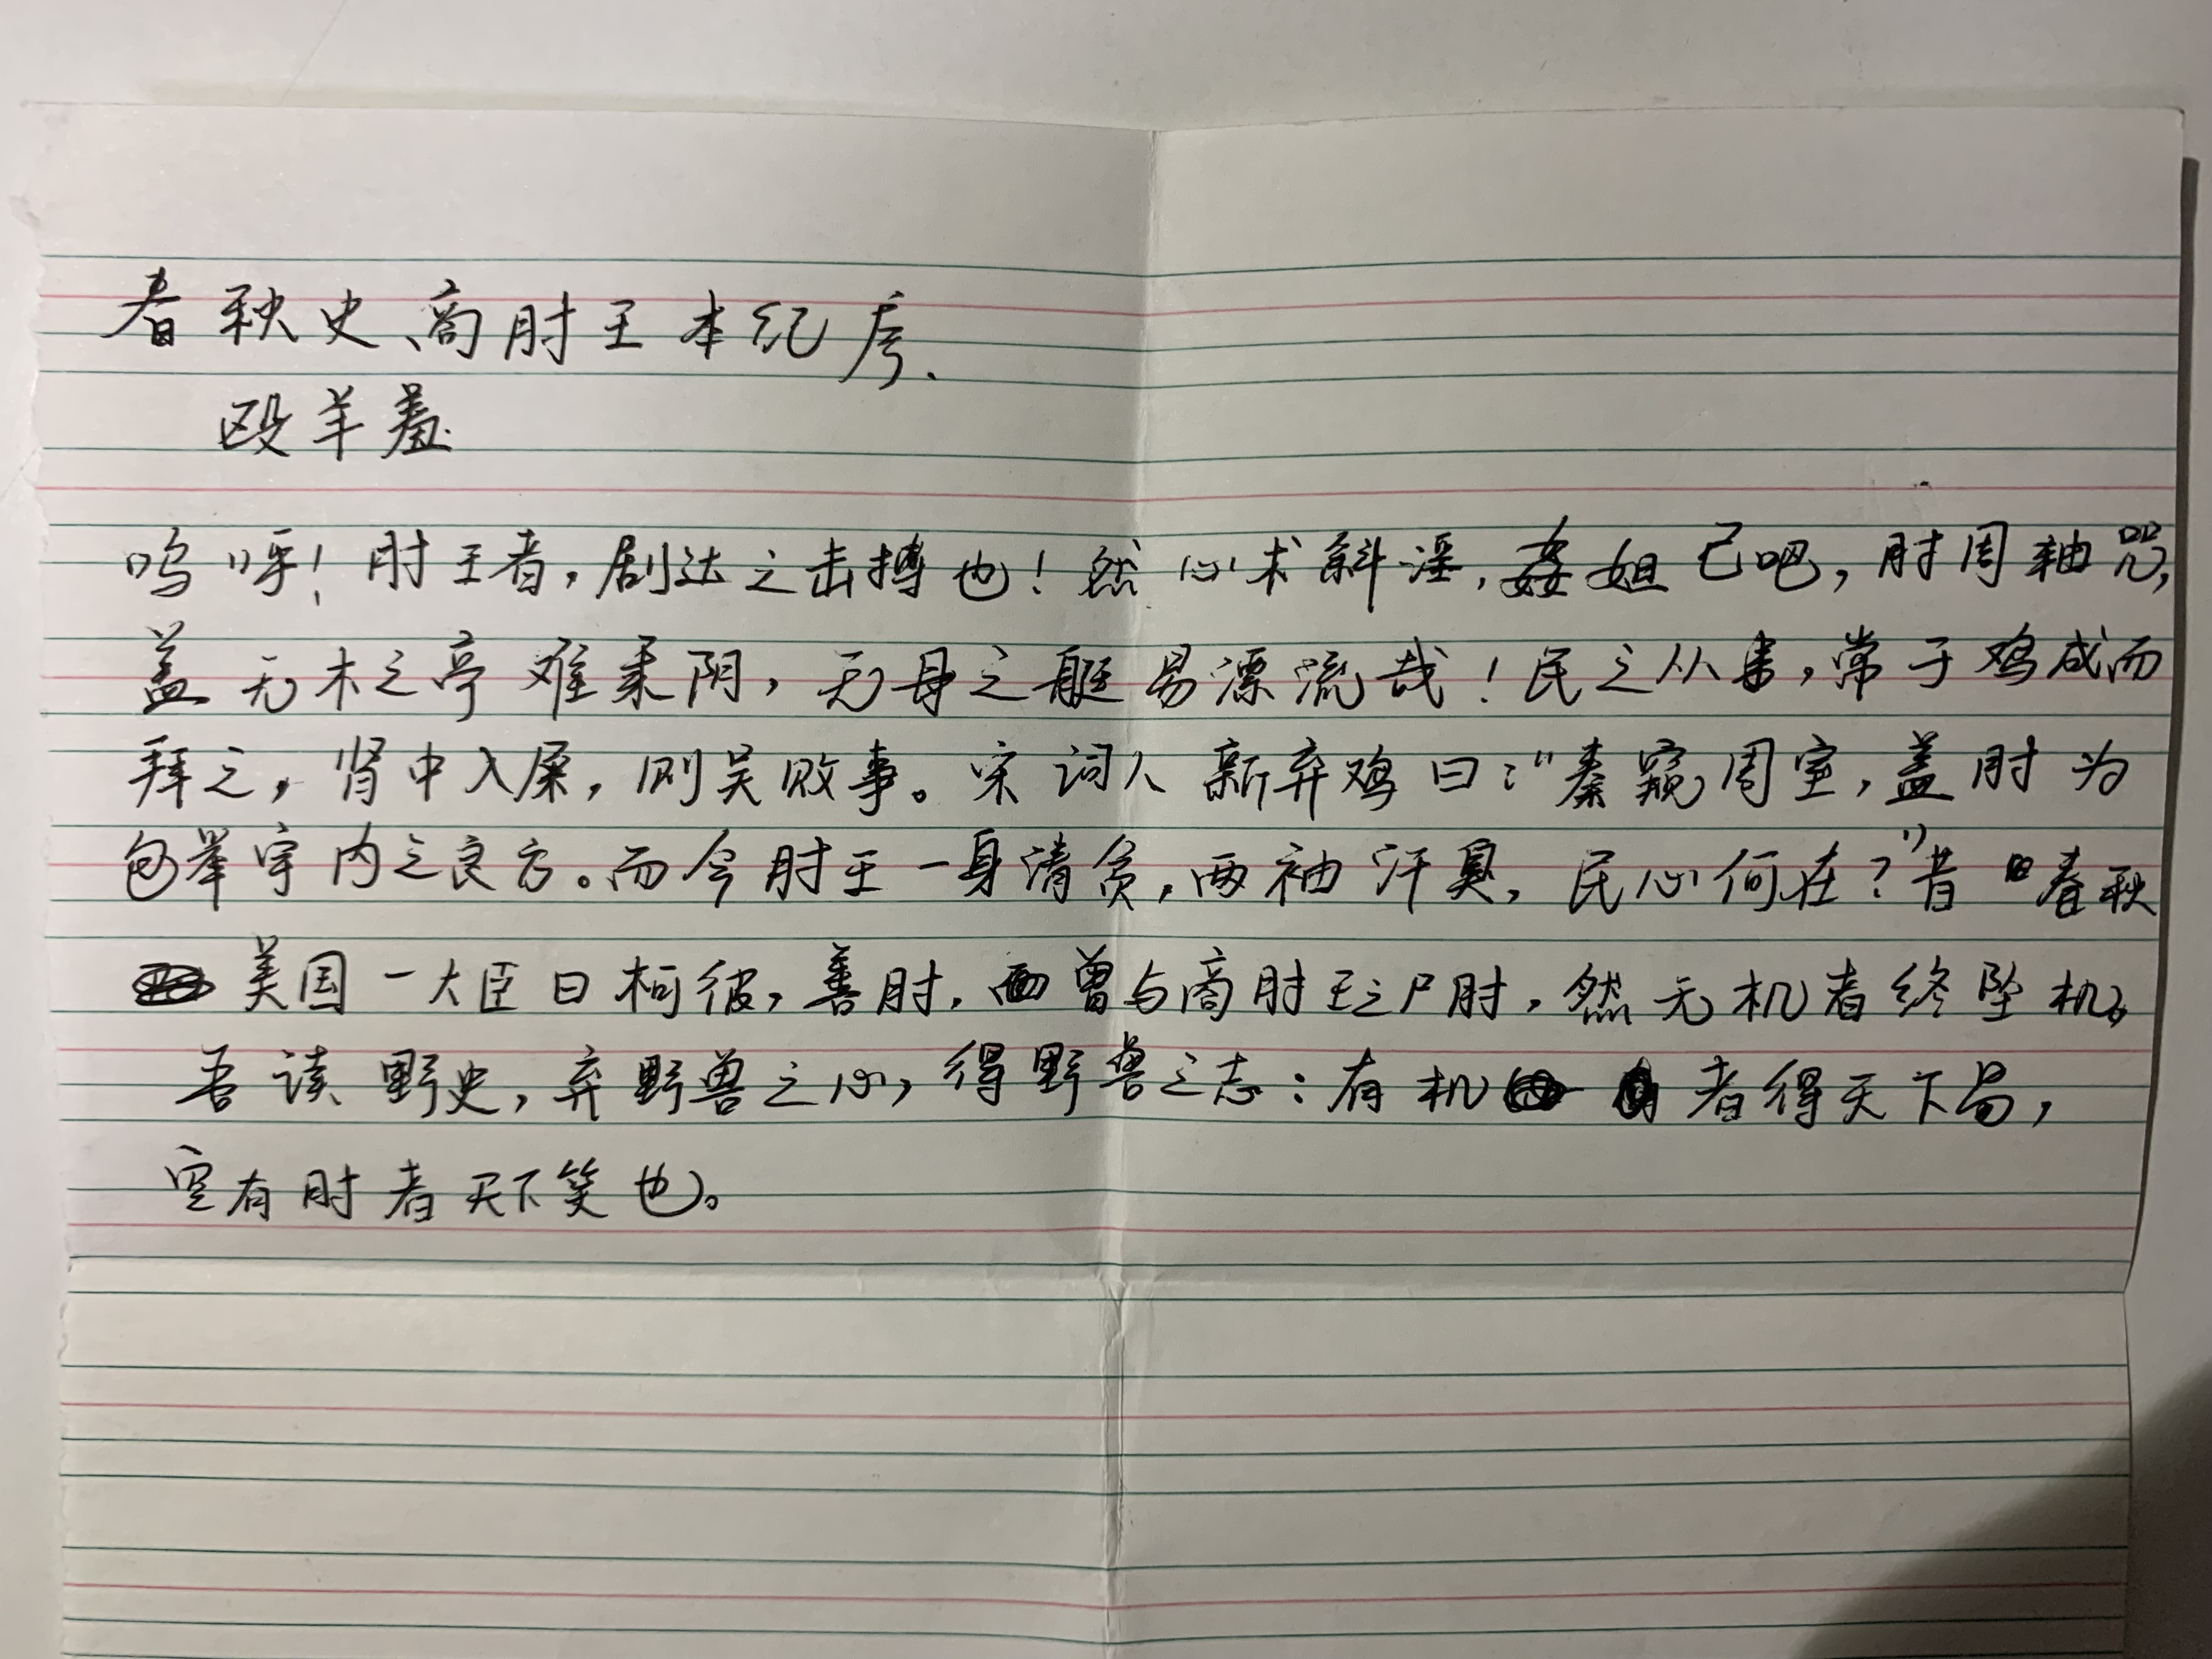 春秋史、商肘王本纪序、
殴羊羞
呜呼！肘王者，剧达之击搏也！然心术斜淫，姦妲己吧，肘周轴咒，
盖无木之亭难乘阴，无身之艇易漂流哉！民之从事，常于鸡成而
拜之，肾中入屎，则吴败事。宋词人新弃鸡曰：“秦窥周室，盖肘为
包举宇内之良方。而今肘王一身清贫，两袖汗臭，民心何在？”昔春秋
美国一大臣曰柯彼，善肘，曾与商肘王之尸肘，然无机者终坠机。
吾读野史，弃野兽之心，得野兽之志：有机者得天下局，
空有肘者天下笑也。